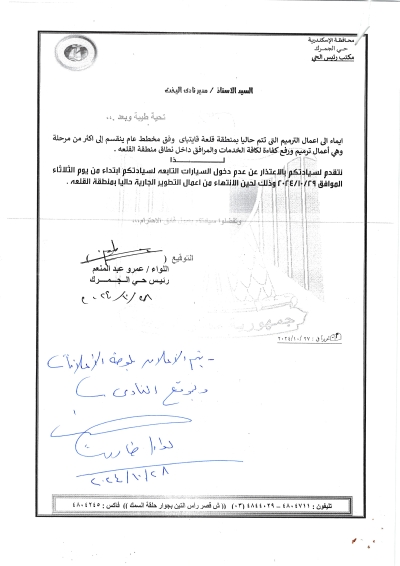 محافظة الإسكندرية
حي الجمرك
مكتب رئيس الحي
السيد الاستاذ / مدير نادى اليخت
تحية طيبة وبعد ،،،
ايماء الى اعمال الترميم التى تتم حاليا بمنطقة قلعة قايتباى وفق مخطط عام ينقسم إلى اكثر من مرحلة
وهي أعمال ترميم ورفع كفاءة لكافة الخدمات والمرافق داخل نطاق منطقة القلعه .
لـــذا
نتقدم لسيادتكم بالاعتذار عن عدم دخول السيارات التابعه لسيادتكم ابتداء من يوم الثلاثاء
الموافق ٢٠٢٤/١٠/٢٩ وذلك لحين الانتهاء من اعمال التطوير الجارية حاليا بمنطقة القلعه .
وتفضلوا سيادتكم بقبول فائق الاحترام،،،
التوقيع (
اللواء / عمرو عبد المنعم
رئيس حي الجمرك
٢٠٢٤/١٠/٢٨
جمهورية
تحريرا فى : ٢٠٢٤/١٠/٢٧
- يتم الاعلان بلوحة الإعلانات
وبموقع النادى
لواء / طارق
٢٠٢٤/١٠/٢٨
تليفون : ٤٨٠٤٧١١ - ٤٨٤٤٠٢٩ (٠٣) // ش قصر راس التين بجوار حلقة السمك // فاكس : ٤٨٠٤٢٤٥